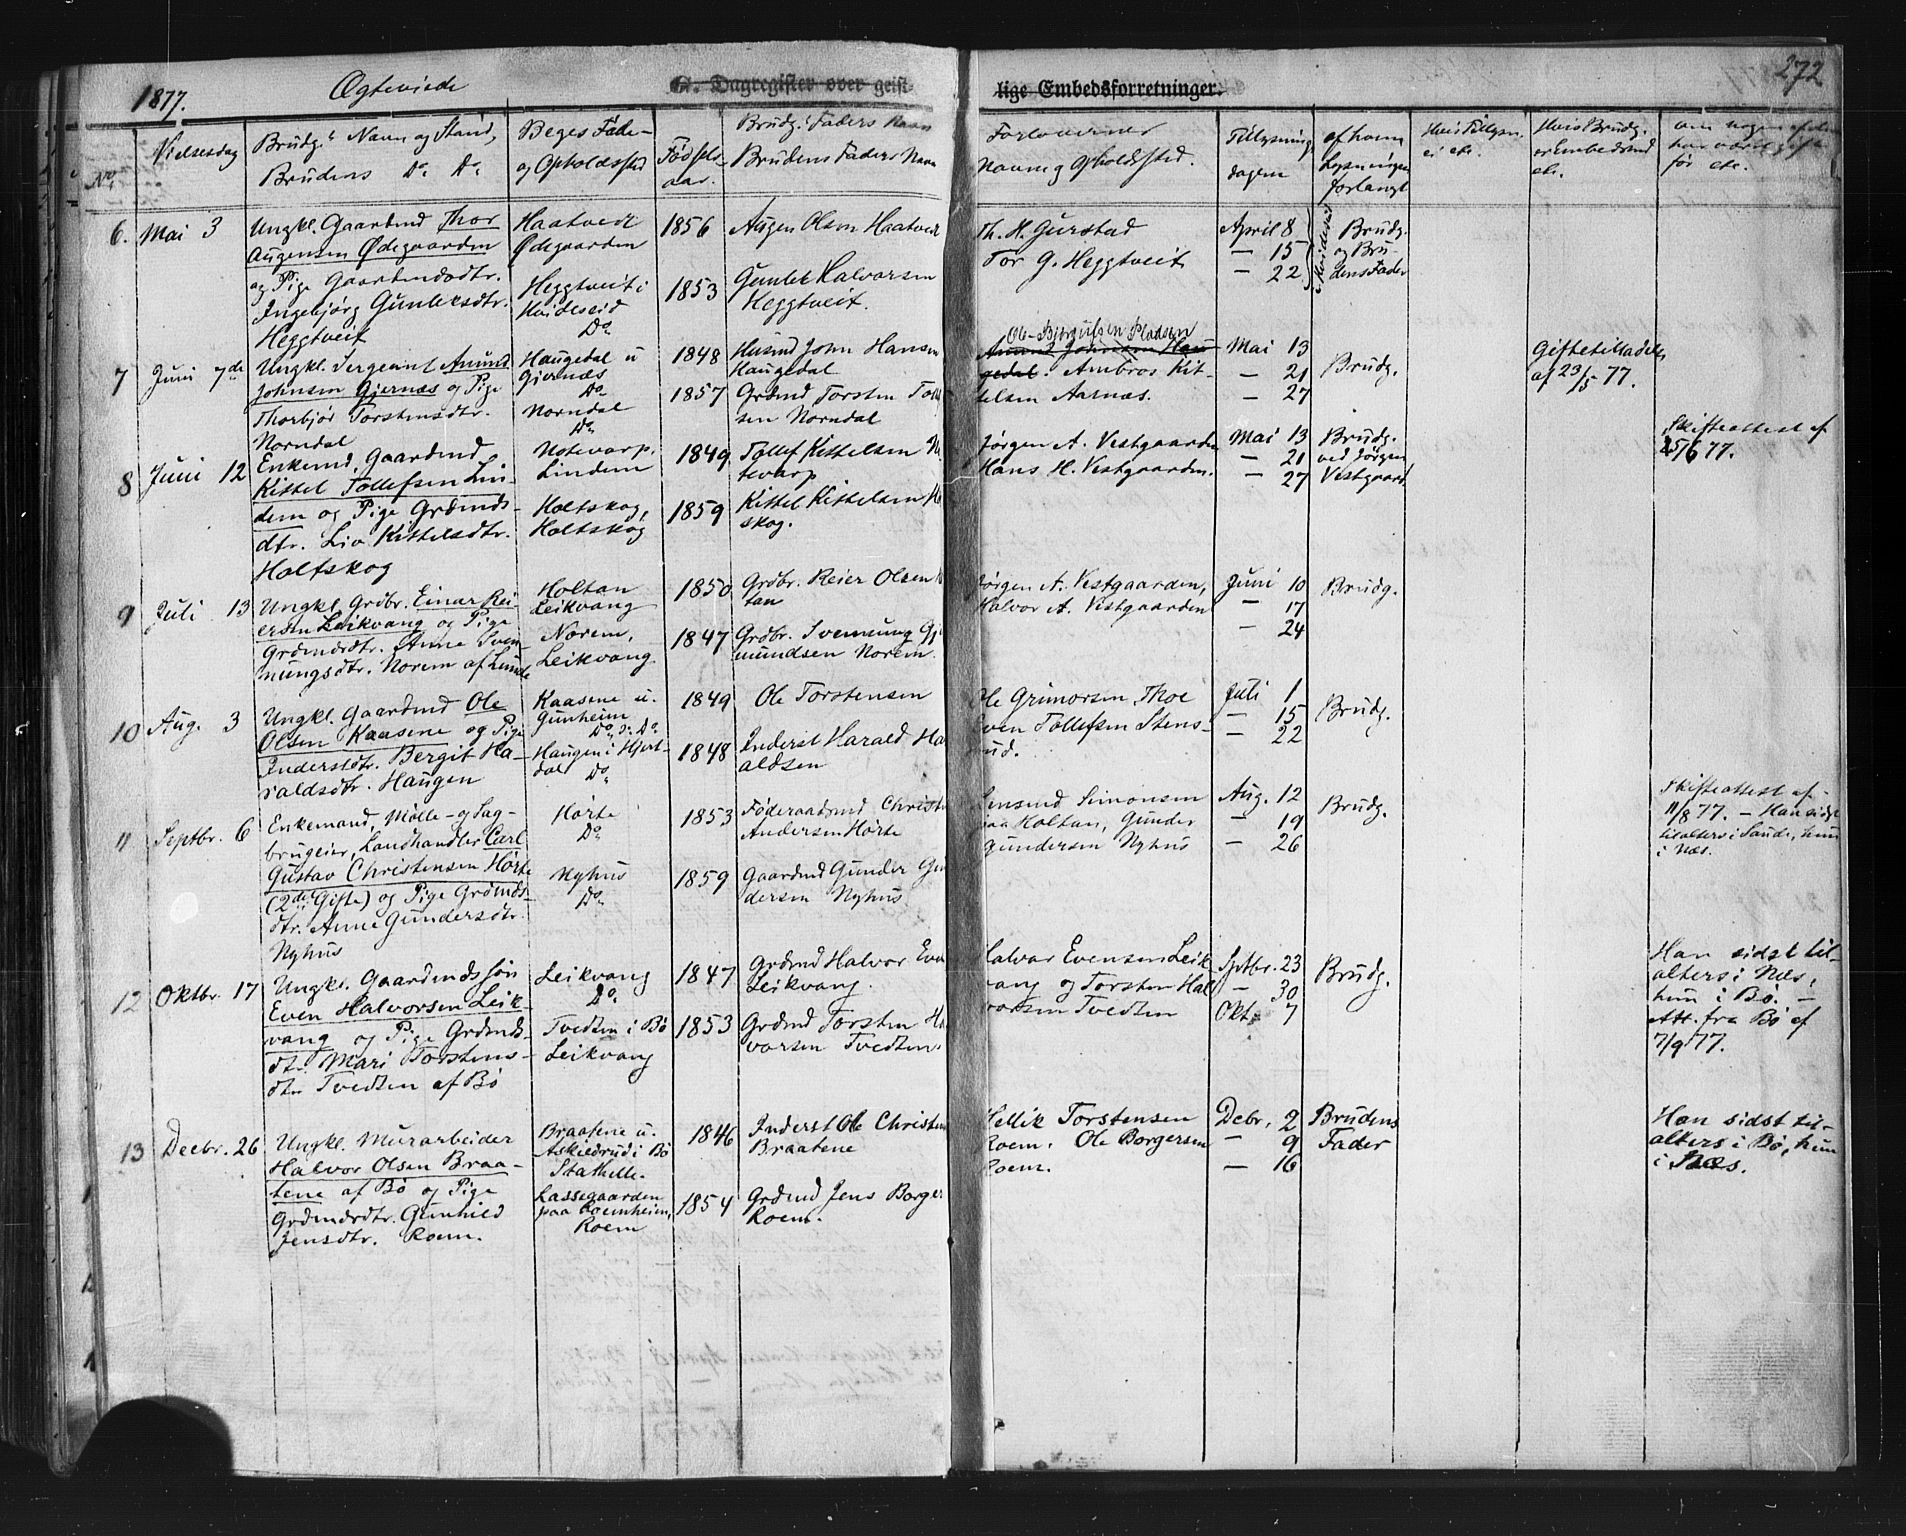 1877.
Ægteviede
G. Dagregister over geist-
lige Embedsforretninger.
272
No
Vielsesdag
Brudg.s Navn og Stand,
Brudens Do Do
Beges Føde-
og Opholdssted
Fødsels-
aar.
Brudg.s Faders Navn
Brudens Faders Navn
Forlovernes
Navn og Opholdssted.
Tillysnings-
dagene
af hvem
Lysningen
forlangt
Hvis Tillysn.
ei etc.
Hvis Brudg.
er Embedsmd
etc.
om nogen af dem
har været gift
før etc.
6. Mai 3
Ungkl. Gaardmd Thor
Augensen Ødegaarden
og Pige Gaardmandsdtr.
Ingebjørg Gunleksdtr.
Heggtveit
Haatvedt
Ødegaarden
Heggtveit i
Hvideseid
Do
1856
1853
Augen Olsen Haatvedt
Gunlek Halvorsen
Heggtveit.
Th. H. Gurstad
Tor G. Heggtveit
April 8
— 15
— 22
i Hvideseid
Brudg.
og Bru-
dens Fader
7 Juni 7de
Ungkl. Sergeant Amund
Johnsen Gjernæs og Pige
Thorbjør Torstensdtr.
Norndal
Haugedal u
Gjernæs
Do
Norndal
Do
1848
1857
Husmd John Hansen
Haugedal
Grdmd Torsten
sen Norndal
Ole Bjørgulfsen Pladsen
Amund Johnsen Hau-
gedal. Ambros Kit-
telsen Aarnæs.
Mai 13
— 21
— 27
Brudg.
Giftetilladelse
af 23/5 77.
8 Juni 12
Enkemd, Gaardmd
Kittel Tollefsen Lin-
dem og Pige Grdmds-
dtr. Liv Kittelsdtr.
Holtskog
Notevarp.
Lindem
Holtskog,
Holtskog
1849
1859
Tollef Kittelsen No
tevarp
Kittel Kittelsen Ho
skog.
Jørgen A. Vestgaarden
Hans H. Vestgaarden.
Mai 13
— 21
— 27
Brudg.
ved Jørgen
Vestgaard.
Skifteattest af
5/6 77.
9 Juli 13
Ungkl. Grdbr. Einar Rei-
ersen Leikvang og Pige
Grdmdsdtr. Anne Sven-
nungsdtr. Norem af Lunde
Holtan
Leikvang
Norem,
Leikvang
1850
1847
Grdbr. Reier Olsen
tan
Grdbr. Svennung
mundsen Norem.
Jørgen A. Vestgaarden,
Halvor A. Vestgaarden
Juni 10
— 17
— 24
Brudg.
10 Aug. 3
Ungkl. Gaardmd Ole
Olsen Kaasene og Pige
Inderstdtr. Bergit Ha-
raldsdtr. Haugen
Kaasene u.
Gunheim
Do, Do
Haugen i Hjert-
dal
Do
1849
1848
Ole Torstensen
Inderst Harald Ha
aldsen
Ole Grimorsen Thoe
Even Tollefsen Stens-
rud.
Juli 1
— 15
— 22
Brudg.
11 Septbr. 6
Enkemand, Mølle- og Sag-
brugeier, Landhandler Carl
Gustav Christensen Hørte
(2det Gifte) og Pige Grdmds-
dtr. Anne Gundersdtr.
Nyhus
Hørte
Do
Nyhus
Do
1853
1859
Føderaadmd Christe
Andersen Hørte
Gaardmd Gunder Gun
dersen Nyhus
Simonsen
paa Holtan, Gunder
Gundersen Nyhus
Aug. 12
— 19
— 26
Brudg.
Skifteattest af
11/8 77. — Han sidst
tilalters i Saude, hun
i Næs.
12 Oktbr. 17
Ungkl. Gaardmdssøn
Even Halvorsen Leik-
vang og Pige Grdmds-
dtr. Mari Torstens-
dtr Tvedten af Bø
Leikvang
Do
Tvedten i Bø
Leikvang
1847
1853
Grdmd Halvor Even
Leikvang.
Grdmd Torsten Ha
vorsen Tvedten.
Halvor Evensen Leik-
vang og Torsten Hal
vorsen Tvedten
Sptbr. 23
— 30
Okt. 7
Brudg.
Han sidst til-
alters i Næs,
hun i Bø. —
Att. fra Bø af
7/9 77.
13 Decbr. 26
Ungkl. Murarbeider
Halvor Olsen Braa-
tene af Bø og Pige
Grdmdsdtr. Gunhild
Jensdtr. Roem.
Braatene u.
Askildrud i Bø
Stathelle.
Lassegaarden
paa Roemheim,
Roem
1846
1854
Inderst Ole Christen
Braatene
Grdmd Jens Borger
Roem.
Hellik Torstensen
Roem. Ole Borgersen
Roem.
Debr. 2
— 9
— 16
Brudens
Fader
Han sidst til-
alters i Bø, hun
i Næs.